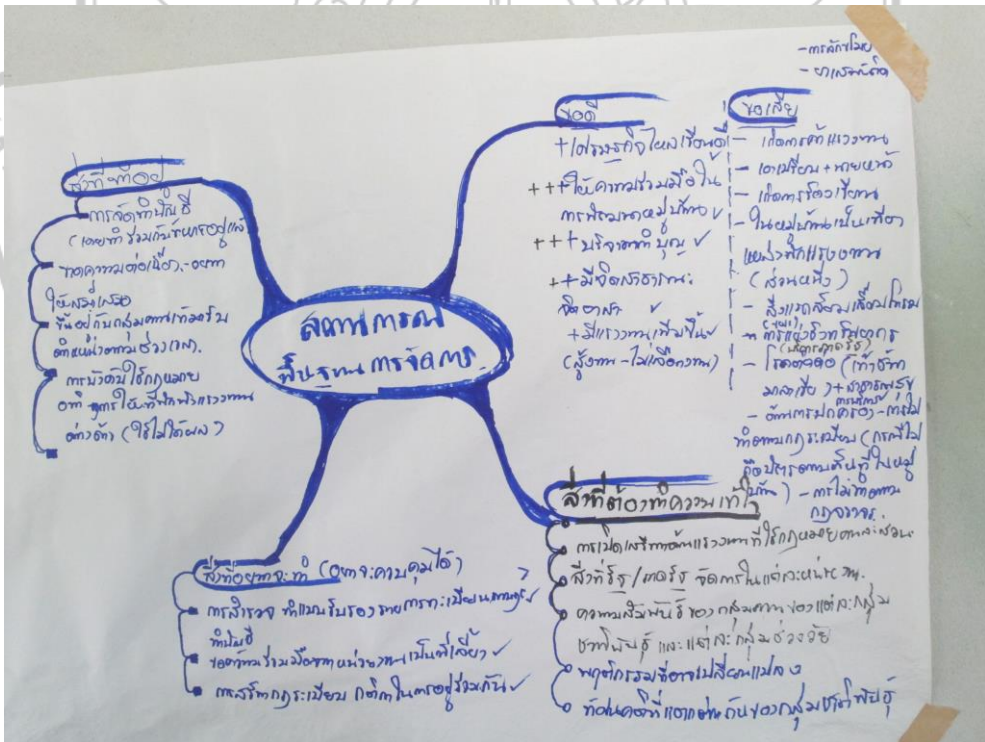 สถานการณ์
พื้นฐานการจัดการ
สิ่งที่ทำอยู่
การจัดทำบัญชี
(เคยทำร่วมกับทหารอยู่แล้ว
ขาดความต่อเนื่อง - อยาก
ให้สม่ำเสมอ
ขึ้นอยู่กับกลุ่มคนเข้ามารับ
ตำแหน่งตามช่วงเวลา.
การบังคับใช้กฎหมาย
อาทิ การให้ที่พักพิงแรงงาน
ต่างด้าว (ใช้ไม่ได้ผล)
ข้อดี
+ เศรษฐกิจไหลเวียนดี
+++ ให้ความร่วมมือใน
การพัฒนาหมู่บ้าน ✓
+++ บริจาคทำบุญ ✓
++ มีจิตสาธารณะ
จิตอาสา ✓
+ มีแรงงานเพิ่มขึ้น ✓
(สู้งาน - ไม่เลือกงาน)
- การลักขโมย
- ยาเสพติด
ข้อเสีย
- เกิดการค้าแรงงาน
- เอาเปรียบ + นายหน้า
- เกิดการร้องเรียน
- ในหมู่บ้านเป็นเพียง
แหล่งพักแรงงาน
(ส่วนหนึ่ง)
- สิ่งแวดล้อมเสื่อมโทรม
(ขยะ)
- การแย่งชิงทรัพยากร
(บริการภาครัฐ)
- โรคติดต่อ (เท้าช้าง
มาลาเรีย) + สาธารณสุข
- ด้านการปกครอง - การไม่
ทำตามกฎระเบียบ (กรณีไม่
บ้าน) - การไม่ทำตาม
กฎจราจร.
สิ่งที่ต้องทำความเข้าใจ
การเปิดเสรีทางด้านแรงงานที่ใช้กฎหมายคนละส่วน
สิ่งที่รัฐ/ภาครัฐ จัดการในแต่ละหน่วยงาน.
ความสัมพันธ์ของกลุ่มคนของแต่ละกลุ่ม
ชาติพันธุ์ และแต่ละกลุ่มช่วงวัย
พฤติกรรมที่อาจเปลี่ยนแปลง
ทัศนคติที่แตกต่างกันของกลุ่มชาติพันธุ์
สิ่งที่อยากจะทำ (อยากจะควบคุมได้)
การสำรวจ ทำแบบรับรองรายการทะเบียน
ทำบัญชี
ขอความร่วมมือจากหน่วยงานเป็นพี่เลี้ยง ✓
การสร้างกฎระเบียบ กติกาในการอยู่ร่วมกัน ✓